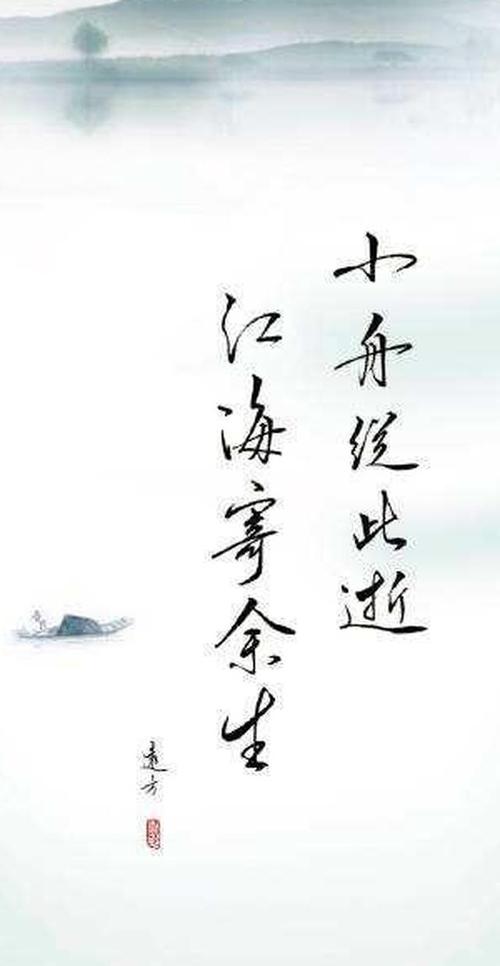 小舟縱此逝
江海寄余生
遠方